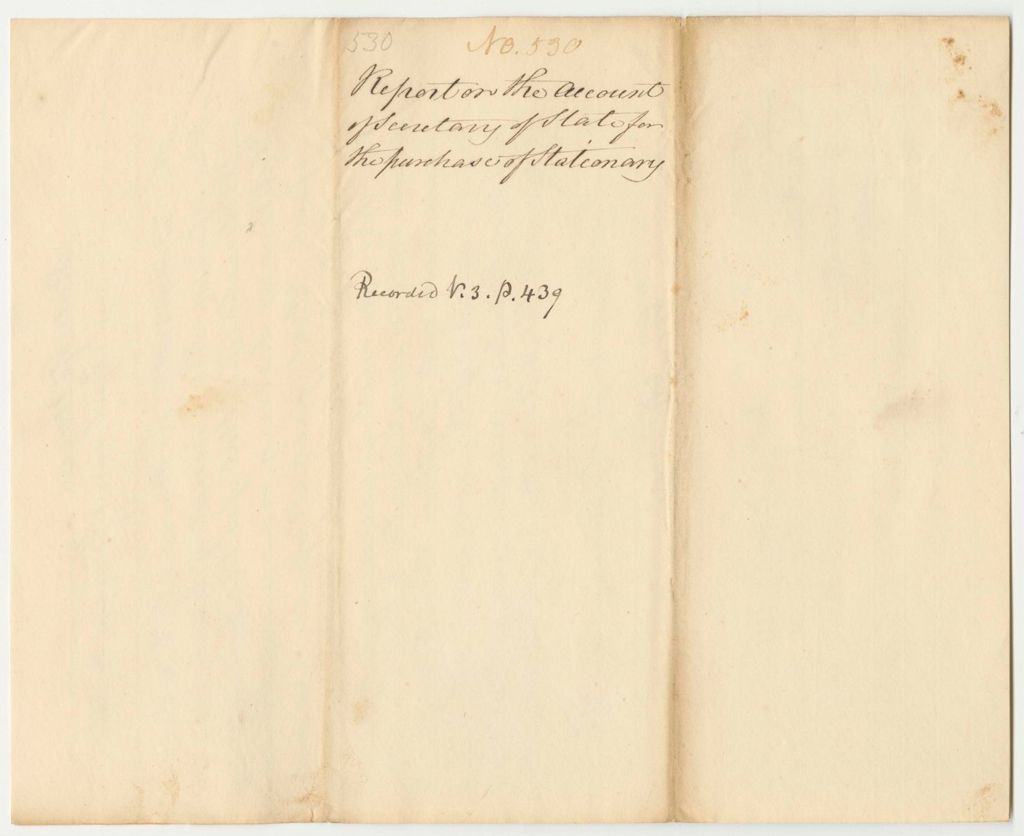 530
No. 530
Report on the Account
of Secretary of State for
the purchase of Stationary
Recorded V. 3. p. 439